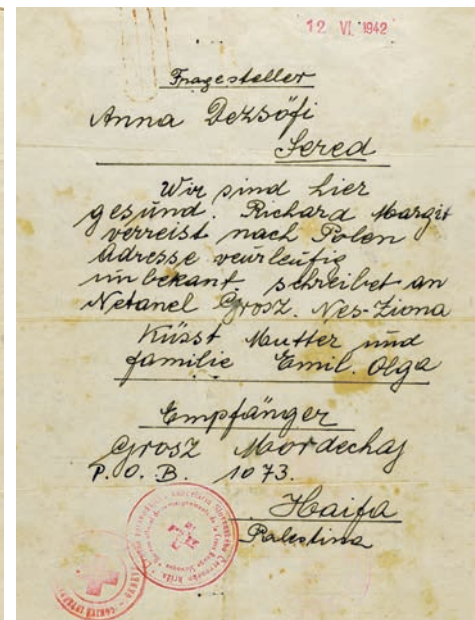 12 VI. 1942
Fragesteller
Anna Dezsöfi
Sered
Wir sind hier
gesund. Richard Margit
verreist nach Polen
Adresse veurleufig
unbekant schreibet an
Netanel Grosz. Nes-Ziona
Küsst Mutter und
familie Emil. Olga
Empfänger
Grosz Mordechaj
P.O.B. 1073.
Haifa
Palestina